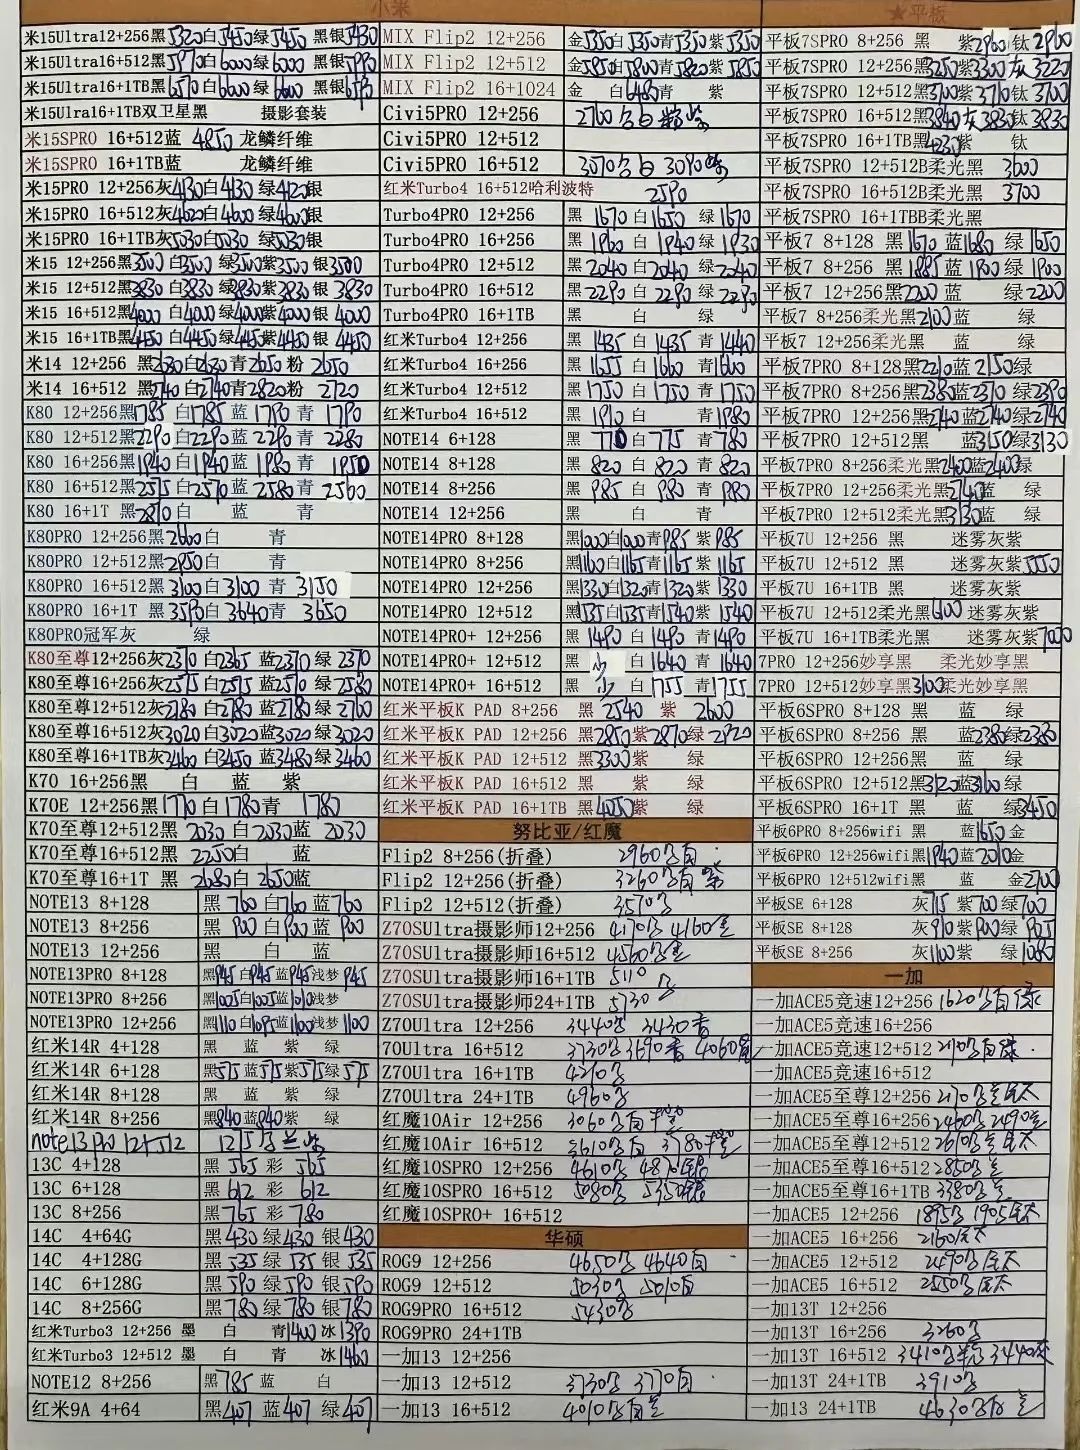 小米
米15Ultra12+256黑5320白5450绿5450 黑银5430
米15Ultra16+512黑5970白6000绿6000 黑银5990
米15Ultra16+1TB黑6570白6600绿6600 黑银
米15Ulra16+1TB双卫星黑 摄影套装
米15SPRO 16+512蓝 4850 龙鳞纤维
米15SPRO 16+1TB蓝 龙鳞纤维
米15PRO 12+256灰4130白4130 绿4120银
米15PRO 16+512灰4620白4600 绿4600银
米15PRO 16+1TB灰5030白5030 绿5030银
米15 12+256黑3500 白3500 绿3500紫3500 银3500
米15 12+512黑3830 白3830 绿3830紫3830 银 3830
米15 16+512黑4000 白4000 绿4000紫4000 银 4000
米15 16+1TB黑4450 白4450 绿4450紫4450 银 4450
米14 12+256 黑2630白2630 青2650 粉 2650
米14 16+512 黑2740 白2740青2820粉 2720
K80 12+256黑1785 白1785 蓝 1790 青 1790
K80 12+512黑2290白2290蓝 2290 青 2280
K80 16+256黑1940 白1940蓝 1980 青 1950
K80 16+512黑2575 白2570 蓝 2580青 2560
K80 16+1T 黑2870白 蓝 青
K80PRO 12+256黑2600白 青
K80PRO 12+512黑2950白 青
K80PRO 16+512黑3100白 3100 青 3150
K80PRO 16+1T 黑3590白 3640青 3650
K80PRO冠军灰 绿
K80至尊12+256灰2370 白2365 蓝2370绿 2370
K80至尊16+256灰2575 白2575 蓝2570 绿 2580
K80至尊12+512灰2780 白2780 蓝2780绿 2760
K80至尊16+512灰3020白3020蓝3020绿 3020
K80至尊16+1TB灰3460 白3450 蓝3480绿 3460
K70 16+256黑 白 蓝 紫
K70E 12+256黑1770白1780青 1780
K70至尊12+512黑 2030 白2030蓝 2030
K70至尊16+512黑 2250白 蓝
K70至尊16+1T 黑 2680白 2650蓝
NOTE13 8+128 黑 760 白760 蓝760
NOTE13 8+256 黑 900 白900 蓝 900
NOTE13 12+256 黑 白 蓝
NOTE13PRO 8+128 黑945白945蓝945浅梦 945
NOTE13PRO 8+256 黑1005白1005蓝1010浅梦
NOTE13PRO 12+256 黑1110白1095蓝1100浅梦 1100
红米14R 4+128 黑 蓝 紫 绿
红米14R 6+128 黑575蓝575紫575绿575
红米14R 8+128 黑 蓝 紫 绿
红米14R 8+256 黑840蓝840紫 绿
note13pro 12+512 1275白兰紫
13C 4+128 黑 565 彩 565
13C 6+128 黑 612 彩 612
13C 8+256 黑 765 彩 780
14C 4+64G 黑 430 绿430 银430
14C 4+128G 黑 535 绿535 银535
14C 6+128G 黑 590 绿590 银590
14C 8+256G 黑 780 绿780 银780
红米Turbo3 12+256 墨 白 青1400冰1390
红米Turbo3 12+512 墨 白 青 冰1460
NOTE12 8+256 黑 785 蓝 白
红米9A 4+64 黑407 蓝407 绿407
MIX Flip2 12+256 金5350白5350青5350紫5350
MIX Flip2 12+512 金5850白5800青5820紫5850
MIX Flip2 16+1024 金 白6480青 紫
Civi5PRO 12+256 2760 白 粉紫
Civi5PRO 12+512
Civi5PRO 16+512 3070 白 3090紫
红米Turbo4 16+512哈利波特 2590
Turbo4PRO 12+256 黑 1670 白1650 绿1670
Turbo4PRO 16+256 黑 1960 白 1940 绿 1930
Turbo4PRO 12+512 黑 2040 白2040 绿2040
Turbo4PRO 16+512 黑 2290 白 2290 绿 2290
Turbo4PRO 16+1TB 黑 白 绿
红米Turbo4 12+256 黑 1435 白 1435 青1440
红米Turbo4 16+256 黑 1655 白 1660 青1600
红米Turbo4 12+512 黑 1750 白 1750 青 1750
红米Turbo4 16+512 黑 1910 白 青1980
NOTE14 6+128 黑 770 白 775 青780
NOTE14 8+128 黑 820 白 820 青820
NOTE14 8+256 黑 985 白 980 青 980
NOTE14 12+256 黑 白 青
NOTE14PRO 8+128 黑1000白1000青985 紫985
NOTE14PRO 8+256 黑1160白1165青1165 紫1165
NOTE14PRO 12+256 黑1330白1320青1320 紫1330
NOTE14PRO 12+512 黑1535白1535青1540紫 1540
NOTE14PRO+ 12+256 黑 1490 白 1490 青1490
NOTE14PRO+ 12+512 黑 少 白 1640 青 1640
NOTE14PRO+ 16+512 黑 少 白1755 青1755
红米平板K PAD 8+256 黑 2540 紫 2600
红米平板K PAD 12+256 黑2850紫2870绿 2920
红米平板K PAD 12+512 黑3300紫 绿
红米平板K PAD 16+512 黑 紫 绿
红米平板K PAD 16+1TB 黑4050紫 绿
努比亚/红魔
Flip2 8+256(折叠) 2960
Flip2 12+256(折叠) 3260
Flip2 12+512(折叠) 3570
Z70SUltra摄影师12+256 4170 4160
Z70SUltra摄影师16+512 4560
Z70SUltra摄影师16+1TB 5110
Z70SUltra摄影师24+1TB 5730
Z70Ultra 12+256 3440 3430青
70Ultra 16+512 3730 3690青 4060
Z70Ultra 16+1TB 4210
Z70Ultra 24+1TB 4960
红魔10Air 12+256 3060
红魔10Air 16+512 3610 3780
红魔10SPRO 12+256 4610 4870
红魔10SPRO 16+512 5080 5350
红魔10SPRO+ 16+512
华硕
ROG9 12+256 4650 4640白
ROG9 12+512 5030 5010白
ROG9PRO 16+512 5430
ROG9PRO 24+1TB
一加13 12+256
一加13 12+512 3730 3770白
一加13 16+512 4010
★平板
平板7SPRO 8+256 黑 紫2960钛 2960
平板7SPRO 12+256黑3250紫3300灰 3220
平板7SPRO 12+512黑3700紫3710钛 3700
平板7SPRO 16+512黑3840灰3830钛 3830
平板7SPRO 16+1TB黑4230紫 钛
平板7SPRO 12+512B柔光黑 3600
平板7SPRO 16+512B柔光黑 3700
平板7SPRO 16+1TBB柔光黑
平板7 8+128 黑1670 蓝1680 绿1650
平板7 8+256 黑1885 蓝1900 绿1900
平板7 12+256黑2200 蓝 绿2200
平板7 8+256柔光黑2100蓝 绿
平板7 12+256柔光黑 蓝 绿
平板7PRO 8+128黑2210蓝2150绿
平板7PRO 8+256黑2380蓝2370 绿2390
平板7PRO 12+256黑2740蓝2740绿2740
平板7PRO 12+512黑 蓝3150绿3130
平板7PRO 8+256柔光黑2400蓝2400绿
平板7PRO 12+256柔光黑2740蓝 绿
平板7PRO 12+512柔光黑3130蓝 绿
平板7U 12+256 黑 迷雾灰紫
平板7U 12+512 黑 迷雾灰紫5550
平板7U 16+1TB 黑 迷雾灰紫
平板7U 12+512柔光黑 迷雾灰紫
平板7U 16+1TB柔光黑 迷雾灰紫7000
7PRO 12+256妙享黑 柔光妙享黑
7PRO 12+512妙享黑3100柔光妙享黑
平板6SPRO 8+128 黑 蓝 绿
平板6SPRO 8+256 黑 蓝2380绿2380
平板6SPRO 12+256黑 蓝 绿
平板6SPRO 12+512黑3120蓝3160 绿
平板6SPRO 16+1T 黑 蓝 绿3450
平板6PRO 8+256wifi 黑 蓝1650 金
平板6PRO 12+256wifi黑1940蓝2010金
平板6PRO 12+512wifi黑 蓝 金2700
平板SE 6+128 灰715 紫700 绿700
平板SE 8+128 灰910紫900绿 905
平板SE 8+256 灰1100紫 绿 1080
一加
一加ACE5竞速12+256 1620
一加ACE5竞速16+256
一加ACE5竞速12+512
一加ACE5竞速16+512
一加ACE5至尊12+256 2170
一加ACE5至尊16+256 2460 2490
一加ACE5至尊12+512 2610
一加ACE5至尊16+512 2850
一加ACE5至尊16+1TB 3380
一加ACE5 12+256 1895 1905
一加ACE5 16+256 2160
一加ACE5 12+512 2490
一加ACE5 16+512 2550
一加13T 12+256
一加13T 16+256 3260
一加13T 16+512 3410 3440
一加13T 24+1TB 3910
一加13 24+1TB 4630